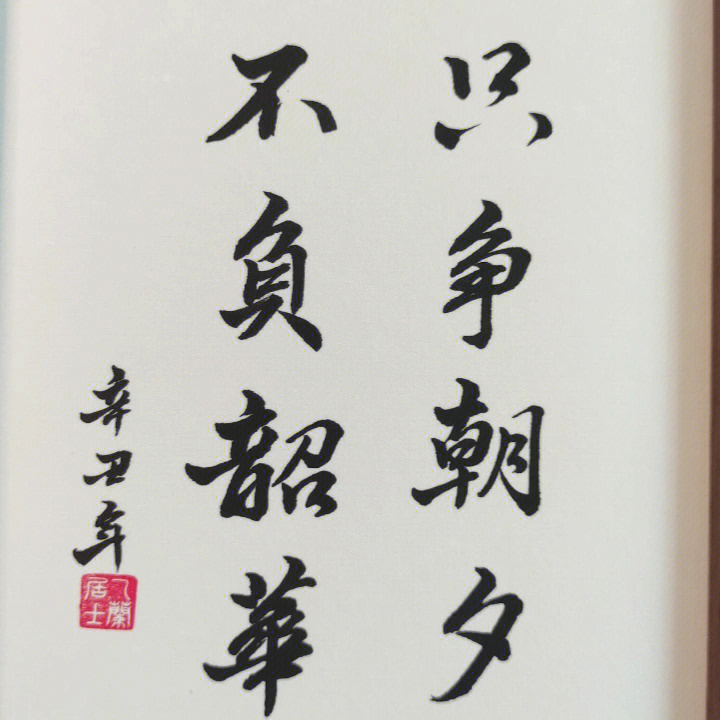 只争朝夕
不负韶華
辛丑年
人蘭居士